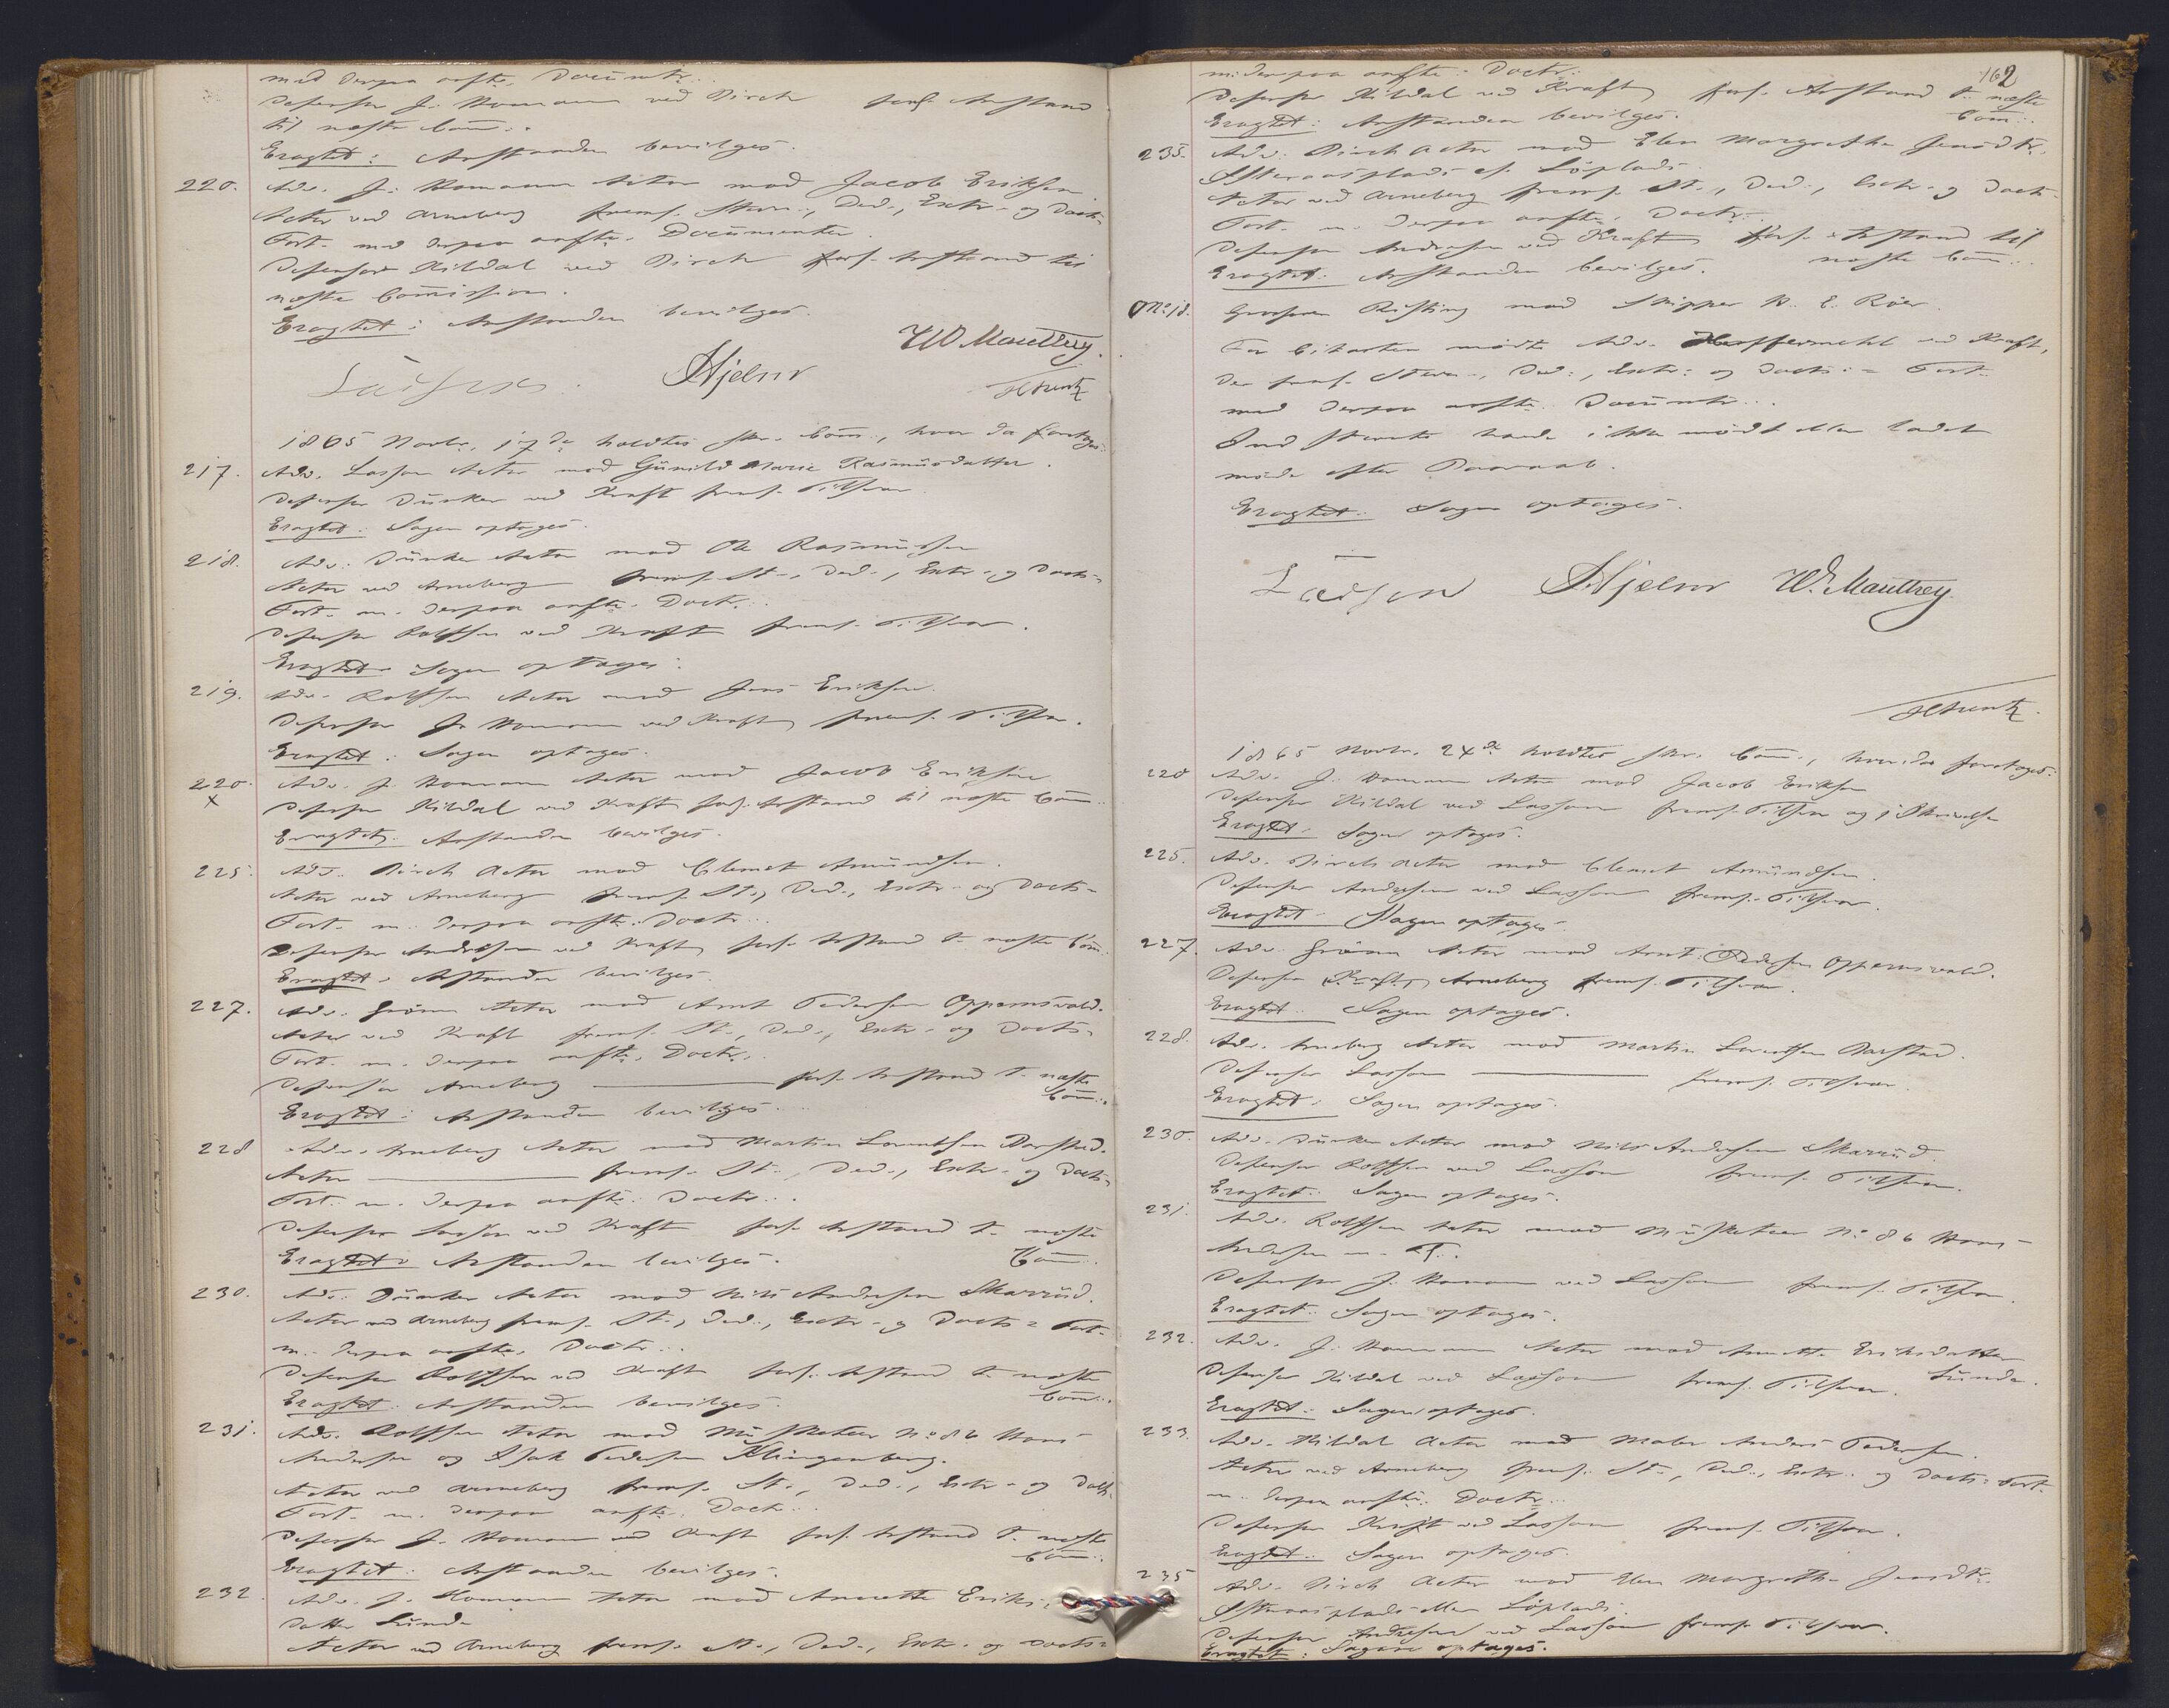 med derpaa anfte. Documtr..
Defensor J. Homann ved Birch forl. Anstand
til næste Com..
Eragtet: Anstanden bevilges.
220. Adv. J. Homann Actor mod Jacob Eriksen
Actor ved Arneberg freml. Stevn.., Ded.., Extr.- og Docts-
Fort. med derpaa anfte. Documenter.
Defensor Kildal ved Birch forl. Anstand til
næste Commission.
Eragtet: Anstanden bevilges.
Lasson. Hjelm W. Maulthey.
1865 Novbr. 17de holdtes skr. Com.., hvor da foretoges:
217. Adv. Lasson Actor mod Gunild Marie Rasmusdatter.
Defensor Dunker ved Kraft freml. Tilsvar.
Eragtet: Sagen optages.
218. Adv. Dunker Actor mod Ole Rasmussen
Actor ved Arneberg freml. St.., Ded.., Extr.- og Docts-
Fort. m. derpaa anfte. Doctr..
Defensor Rolfsen ved Kraft freml. Tilsvar.
Eragtet: Sagen optages.
219. Adv. Rolfsen Actor mod Jens Eriksen.
Defensor J. Homann ved Kraft freml. Tilsvar.
Eragtet: Sagen optages.
220. Adv. J. Homann Actor mod Jacob Eriksen
x Defensor Kildal ved Kraft forl. Anstand til næste Com..
Eragtet: Anstanden bevilges.
225. Adv. Birch Actor mod Clemet Amundsen.
Actor ved Arneberg freml. St.., Ded.., Extr.- og Docts-
Fort. m. derpaa anfte. Doctr..
Defensor Andresen ved Kraft forl. Anstand t. næste Com..
Eragtet: Anstanden bevilges.
227. Adv. Grønn Actor mod Arnt Pedersen Oppemsvald.
Actor ved Kraft freml. St.., Ded.., Extr.- og Docts-
Fort. m. derpaa anfte. Doctr..
Defensor Arneberg ——— forl. Anstand t. næste
Com..
Eragtet: Anstanden bevilges.
228 Adv. Arneberg Actor mod Martin Lorentsen Barstad.
Actor ——— freml. St.., Ded.., Extr.- og Docts-
Fort. m. derpaa anfte. Doctr..
Defensor Lasson ved Kraft forl. Anstand t. næste
Com..
Eragtet: Anstanden bevilges.
230. Adv. Dunker Actor mod Nils Andersen Skarrud.
Actor ved Arneberg freml. St.., Ded.., Extr.- og Docts- Fort.
m. derpaa anfte. Doctr..
Defensor Rolfsen ved Kraft forl. Anstand t. næste
Com..
Eragtet: Anstanden bevilges.
231. Adv. Rolfsen Actor mod Musketeer No 86 Hans
Andersen og Isak Pedersen Klingenberg.
Actor ved Arneberg freml. St.., Ded.., Extr.- og Docts-
Fort. m. derpaa anfte. Doctr..
Defensor J. Homann ved Kraft forl. Anstand t. næste
Com..
Eragtet: Anstanden bevilges.
232. Adv. J. Homann Actor mod Annette Eriks-
datter Lunde
Actor ved Arneberg freml. St.., Ded.., Extr.- og Docts-
162
m. derpaa anfte. Doctr..
Defensor Kildal ved Kraft forl. Anstand t. næste
Com..
Eragtet: Anstanden bevilges.
235. Adv. Birch Actor mod Elen Margrethe Jensdtr.
Actor ved Arneberg freml. St.., Ded.., Extr.- og Docts-
Fort. m. derpaa anfte. Doctr..
Defensor Andresen ved Kraft forl. Anstand til
næste Com..
Eragtet: Anstanden bevilges.
No 18. Grosserer Risting mod Skipper R. E. Röer.
For Citanten mödte Adv. Heffermehl ved Kraft,
der freml. Stevn.., Ded.., Extr.- og Docts- Fort.
med derpaa anfte. Documtr..
Indstevnte havde ikke mödt eller ladet
möde efter Paaraab.
Eragtet: Sagen optages.
Lasson Hjelm W. Maulthey.
1865 Novbr. 24de holdtes skr. Com.., hvor da foretoges:
220 Adv. J. Homann Actor mod Jacob Eriksen
Defensor Kildal ved Lasson freml. Tilsvar og 1 Skrivelse
Eragtet: Sagen optages.
225. Adv. Birch Actor mod Clemet Amundsen.
Defensor Andresen ved Lasson freml. Tilsvar.
Eragtet: Sagen optages.
227. Adv. Grønn Actor mod Arnt Pedersen Oppemsvald.
Defensor Arneberg freml. Tilsvar.
Eragtet: Sagen optages.
228. Adv. Arneberg Actor mod Martin Lorentsen Barstad.
Defensor Lasson ——— freml. Tilsvar.
Eragtet: Sagen optages.
230. Adv. Dunker Actor mod Nils Andersen Skarrud.
Defensor Rolfsen ved Lasson freml. Tilsvar.
Eragtet: Sagen optages.
231. Adv. Rolfsen Actor mod Musketeer No 86 Hans
Andersen m. Fl.
Defensor J. Homann ved Lasson freml. Tilsvar.
Eragtet: Sagen optages.
232. Adv. J. Homann Actor mod Annette Eriksdatter
Lunde.
Defensor Kildal ved Lasson freml. Tilsvar.
Eragtet: Sagen optages.
233. Adv. Kildal Actor mod Maler Anders Pedersen.
Actor ved Arneberg freml. St.., Ded.., Extr.- og Docts- Fort.
m. derpaa anfte. Doctr..
Defensor Kraft ved Lasson freml. Tilsvar.
Eragtet: Sagen optages.
235 Adv. Birch Actor mod Elen Margrethe Jensdtr.
Defensor Andresen ved Lasson freml. Tilsvar.
Eragtet: Sagen optages.